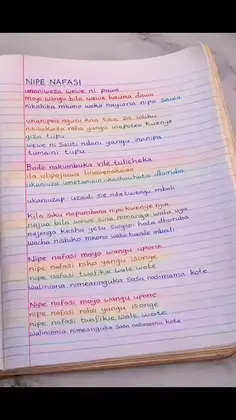 NIPE NAFASI
umaniweza wewe ni pawa
moyo wangu bila wewe hauna dawa
nikishika mkono wako nayiana nipo sawa
umanipea nguvu kaa taa za usiku
nikikukosa raha yangu inapotea kuenye
giza tupu
wewe ni sauti ndani yangu inanipa
tumaini tupu
Bado nakumbuka vile tulicheka
ila ulipojawa
ukanivuta ukashauhuta dhoruba
ukanivuzap uzaidi sie ndetwengu mbali
Kila siku napambana nipo kwenye nya
najua bila wewe sina maraga wala uya
najenga kesha yetu hate dhoruba
wacha nishike mkono wako twende mbali
Nipe nafasi moyo wangu upone
nipe nafasi roho yangu isonge
nipe nafasi twafikie wale wote
waliniona nimeanguka sasa nasimama kote
Nipe nafasi moyo wangu upone
nipe nafasi roho yangu isonge
nipe nafasi twafikie wale wote
waliniona nimeanguka sasa nasimama kote